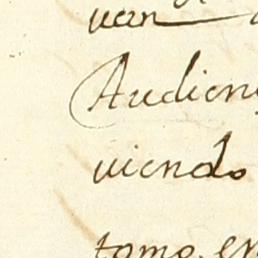 uan
Audien
uiendo
tomo en